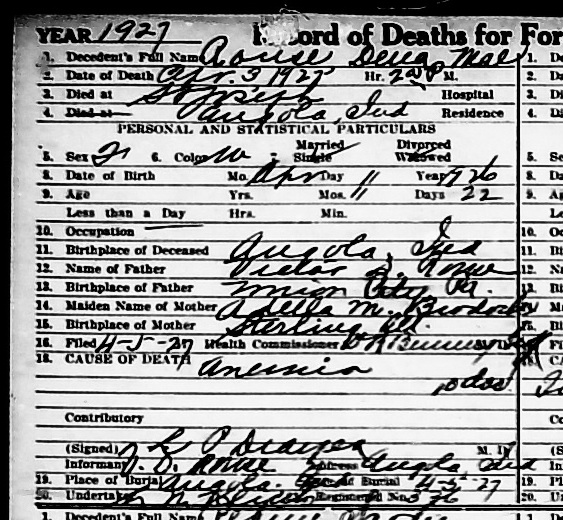 YEAR 1927 Record of Deaths for For
1. Decedent's Full Name Rouse Dena Mae
2. Date of Death Apr. 3 1927 Hr. P M.
3. Died at St Joseph Hospital
4. Died at Angola, Ind Residence
PERSONAL AND STATISTICAL PARTICULARS
5. Sex F 6. Color W 7. Married Single Divorced Widowed
8. Date of Birth Mo. Apr Day 11 Year 1926
9. Age Yrs. Mos. 11 Days 22
Less than a Day Hrs. Min.
10. Occupation
11. Birthplace of Deceased Angola, Ind
12. Name of Father Victor D. Rouse
13. Birthplace of Father Union City Pa.
14. Maiden Name of Mother Adella M.
15. Birthplace of Mother Sterling Ill.
16. Filed 4-5-27 Health Commissioner
18. CAUSE OF DEATH Anemia
10 das.
Contributory
(Signed) L P M. D.
Informant V. D. Rouse Address Angola, Ind
19. Place of Burial Angola, Ind of Burial 4-5-27
20. Undertaker Registered No. 376